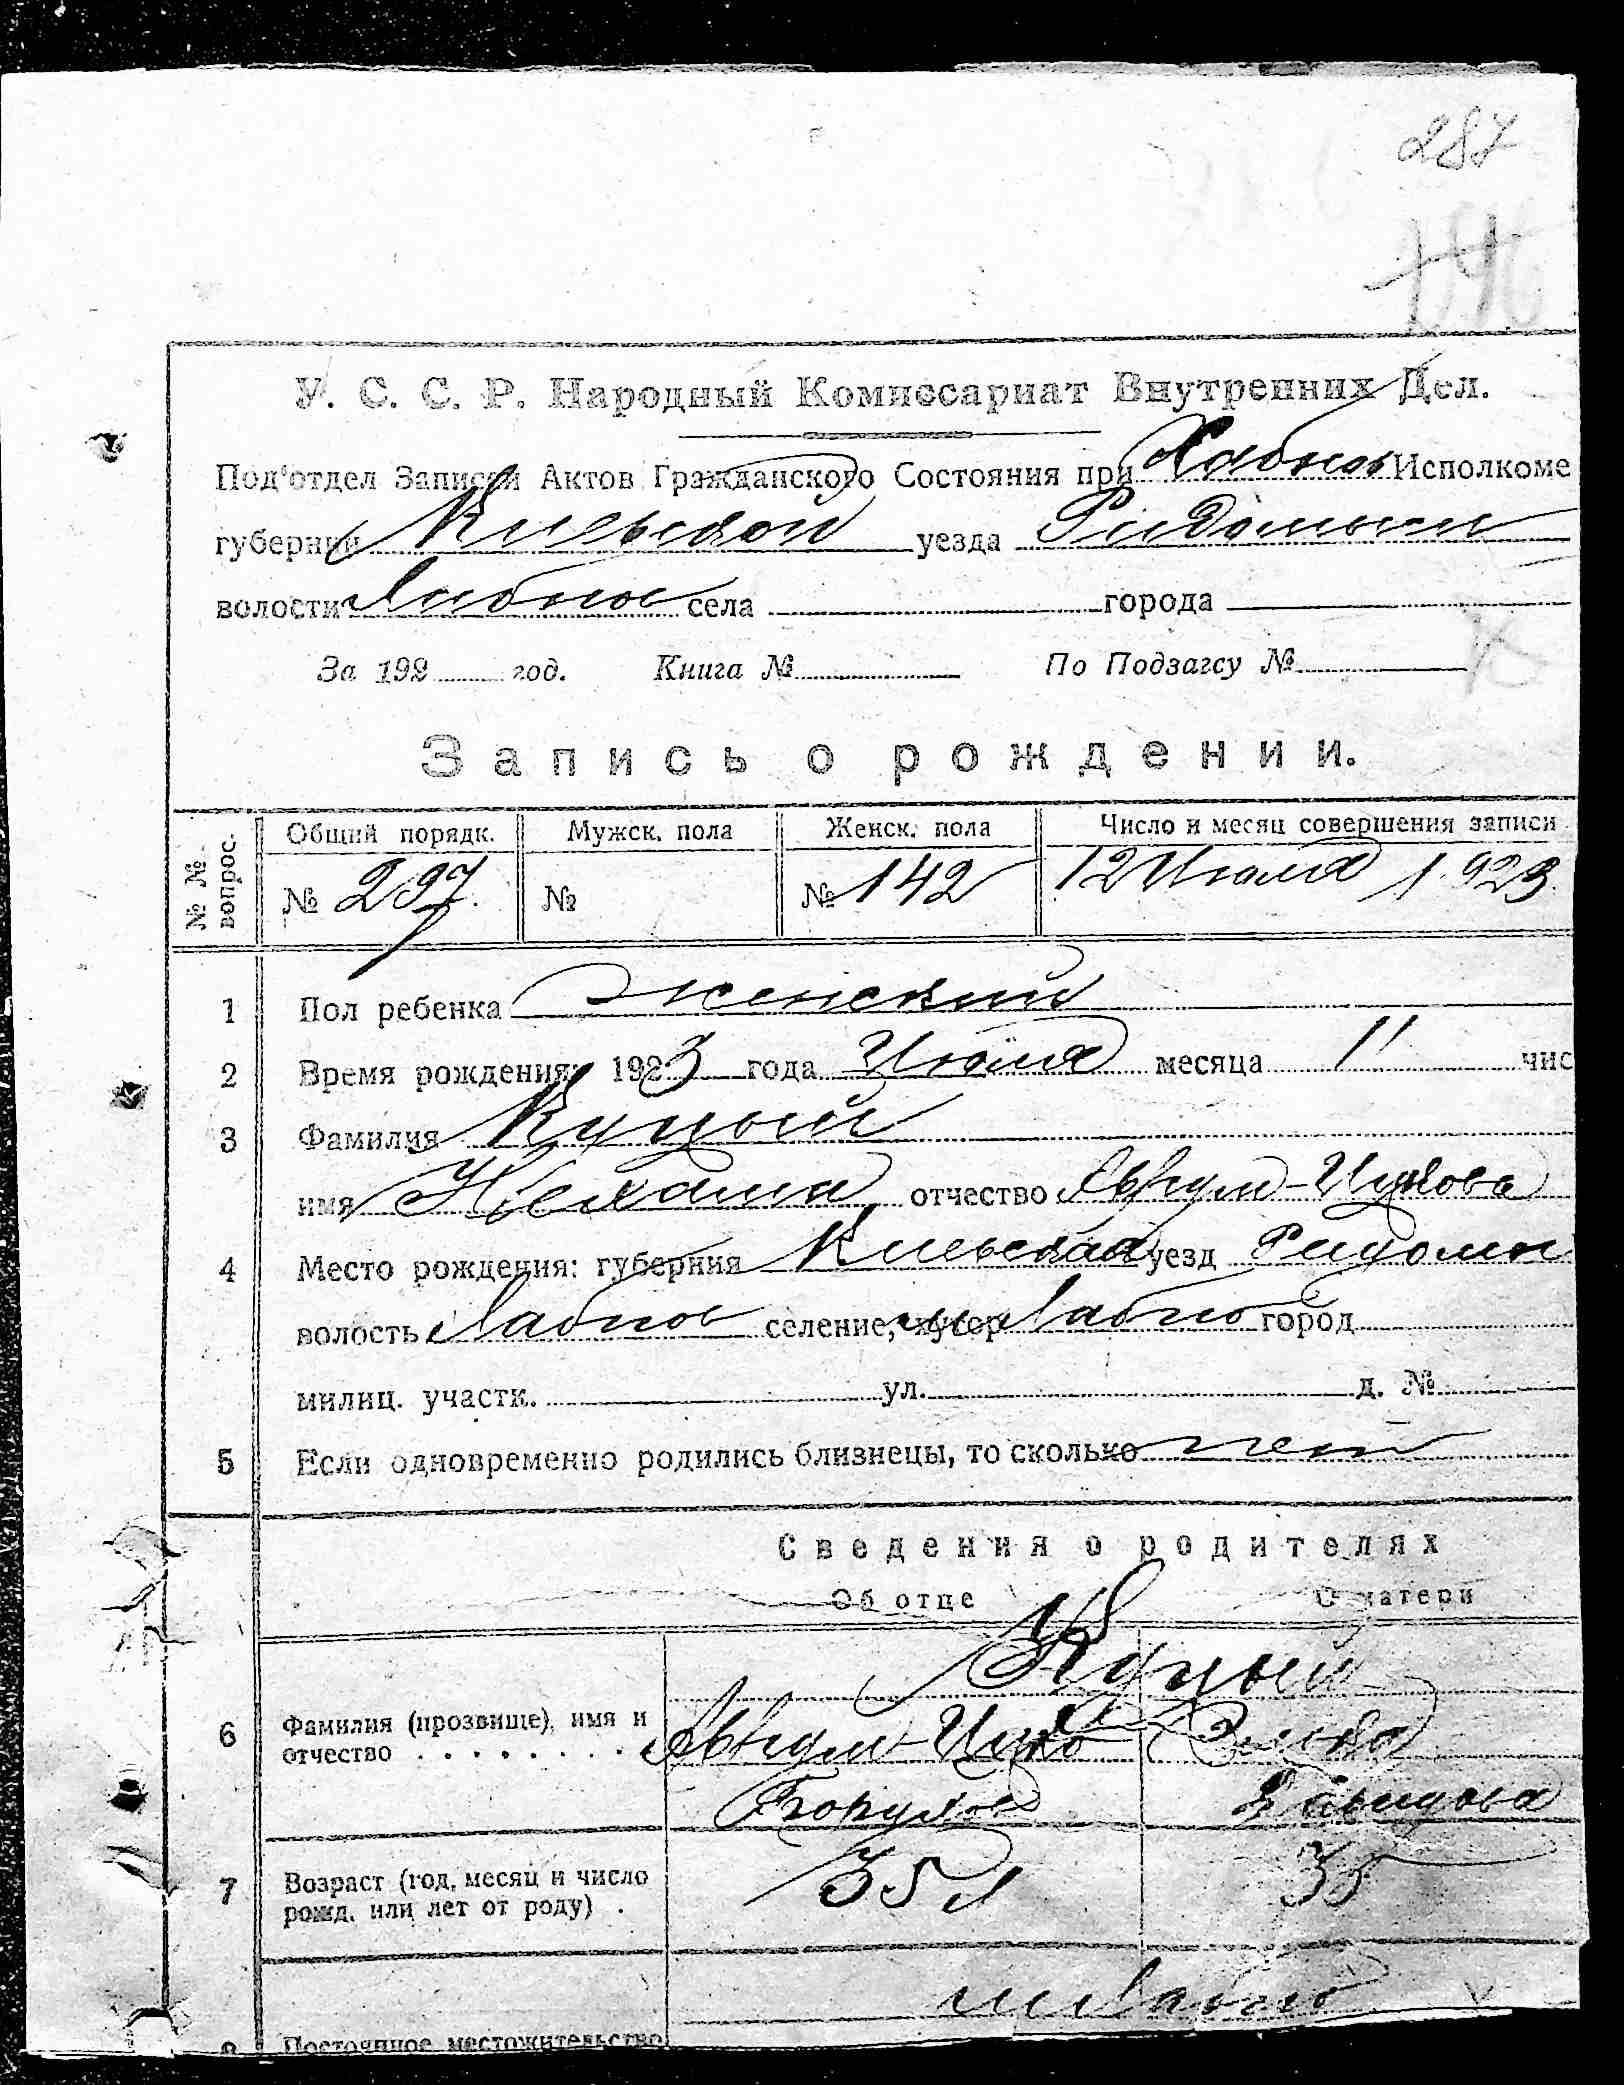 287
У. С. С. Р. Народный Комиссариат Внутренних Дел.
Под'отдел Записи Актов Гражданского Состояния при Хабнов Исполкоме
губернии Киевской уезда
волости Хабнов села города
За 192 год. Книга № По Подзагсу №
Запись о рождении.
№ № вопрос. Общий порядк. Мужск. пола Женск. пола Число и месяц совершения записи
№ 297. № № 142 12 Июля 1923
1 Пол ребенка женский
2 Время рождения: 1923 года Июля месяца 11 чис
3 Фамилия Куцый
имя отчество
4 Место рождения: губерния Киевская уезд
волость Хабнов селение, хутор м. Хабно город
милиц. участк. ул. д. №
5 Если одновременно родились близнецы, то сколько нет
Сведения о родителях
Об отце О матери
Куцый
6 Фамилия (прозвище), имя и
отчество
Давидова
7 Возраст (год, месяц и число
рожд. или лет от роду) . 35 л 35
м Хабно
8 Постоянное местожительство